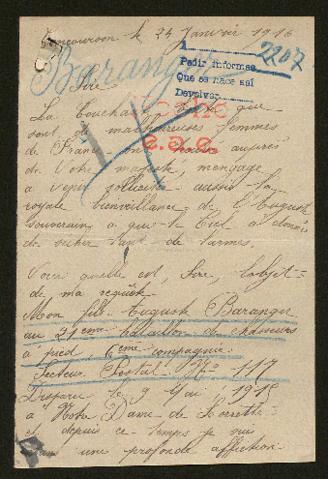 le 24 Janvier 1916
2207
Pedir informes
Que se hace así
Devolver
Baranger
Sire
La touchante
de malheureuses femmes
de France ont auprès
de Votre majesté,
à venir solliciter aussi la
royale bienveillance de l'Auguste
souverain à qui le Ciel a donné
de sécher tant de larmes.
e.a.e.
Voici quelle est, Sire, l'objet
de ma requête
Mon fils Auguste Baranger
au 31ème bataillon de chasseurs
à pied, 6ème compagnie.
Secteur Postal No 117
Disparu le 9 Mai 1915
à Notre Dame de Lorette
et depuis ce temps je suis
dans une profonde affliction